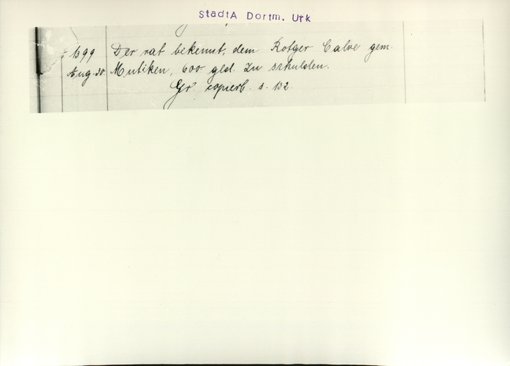 StadtA Dortm. Urk
1399 Der rat bekennt, dem Rotger Calve gem.
Aug 20 Mutiken, 600 gld. zu schulden.
Gr. copierb. s. 132.